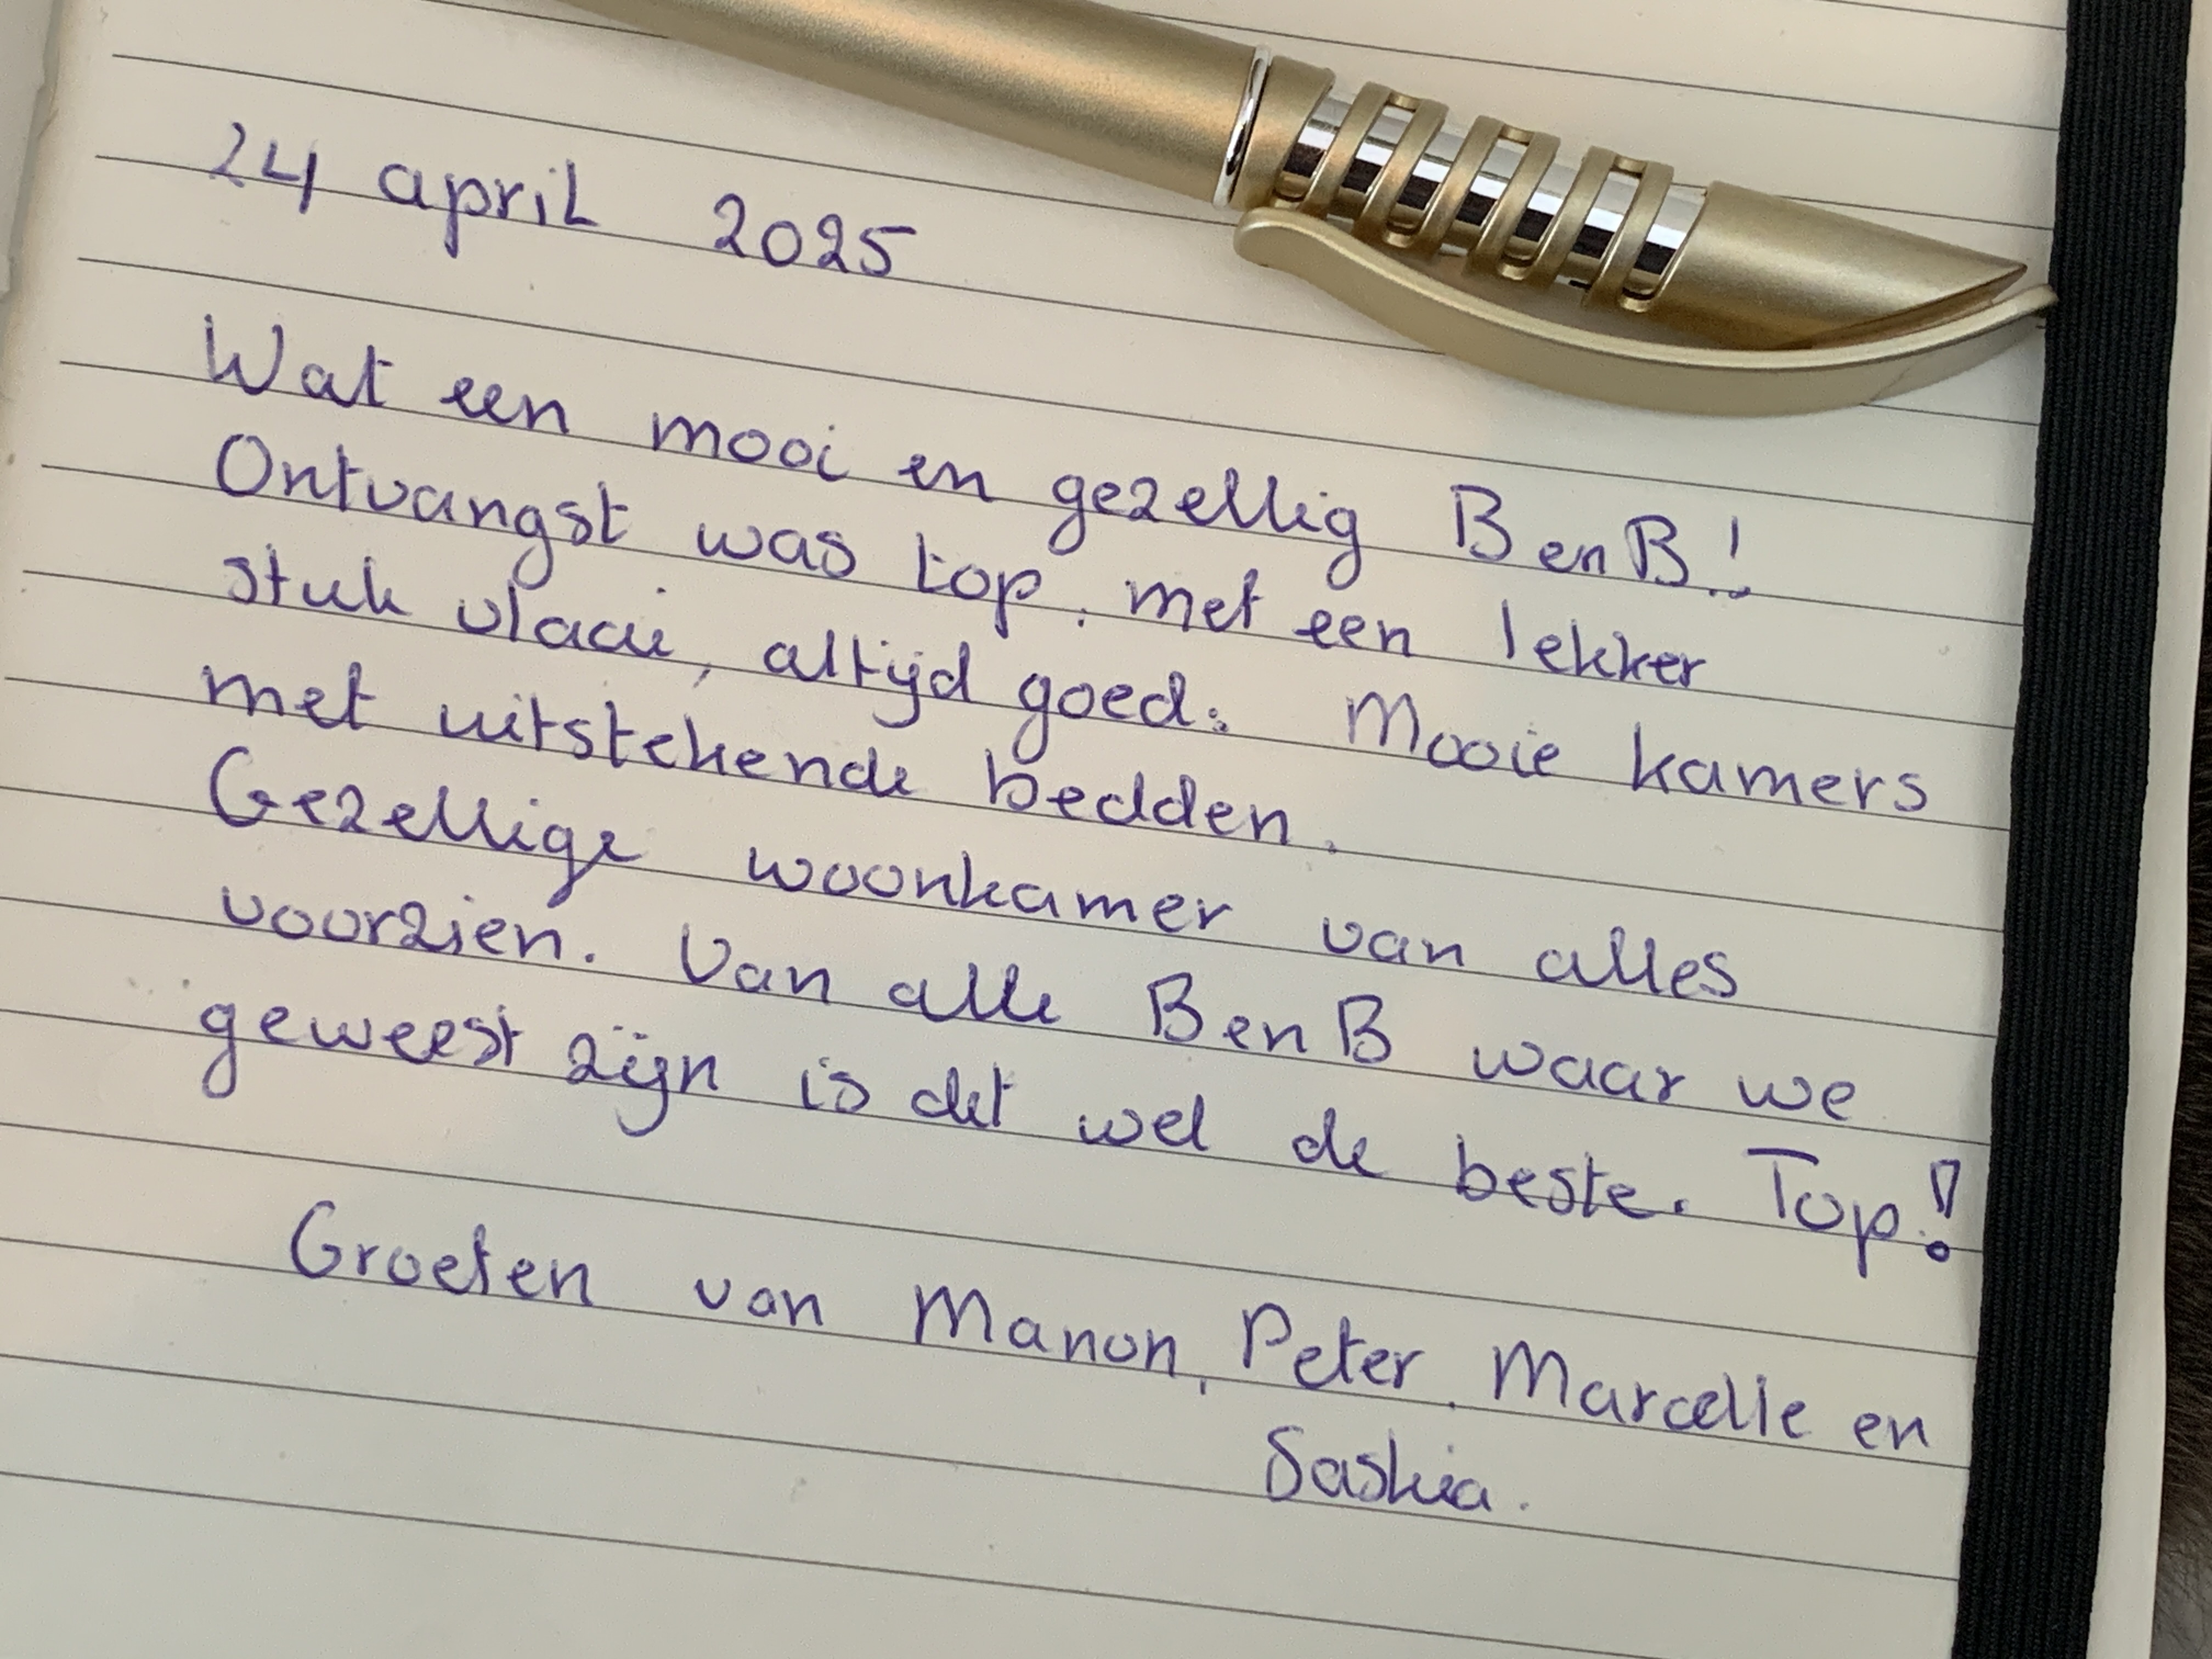 24 april 2025
Wat een mooi en gezellig BenB!
Ontvangst was top, met een lekker
stuk vlaai, altijd goed. Mooie kamers
met uitstekende bedden.
Gezellige woonkamer van alles
voorzien. Van alle BenB waar we
geweest zijn is dit wel de beste. Top!
Groeten van Manon, Peter, Marcelle en
Saskia.